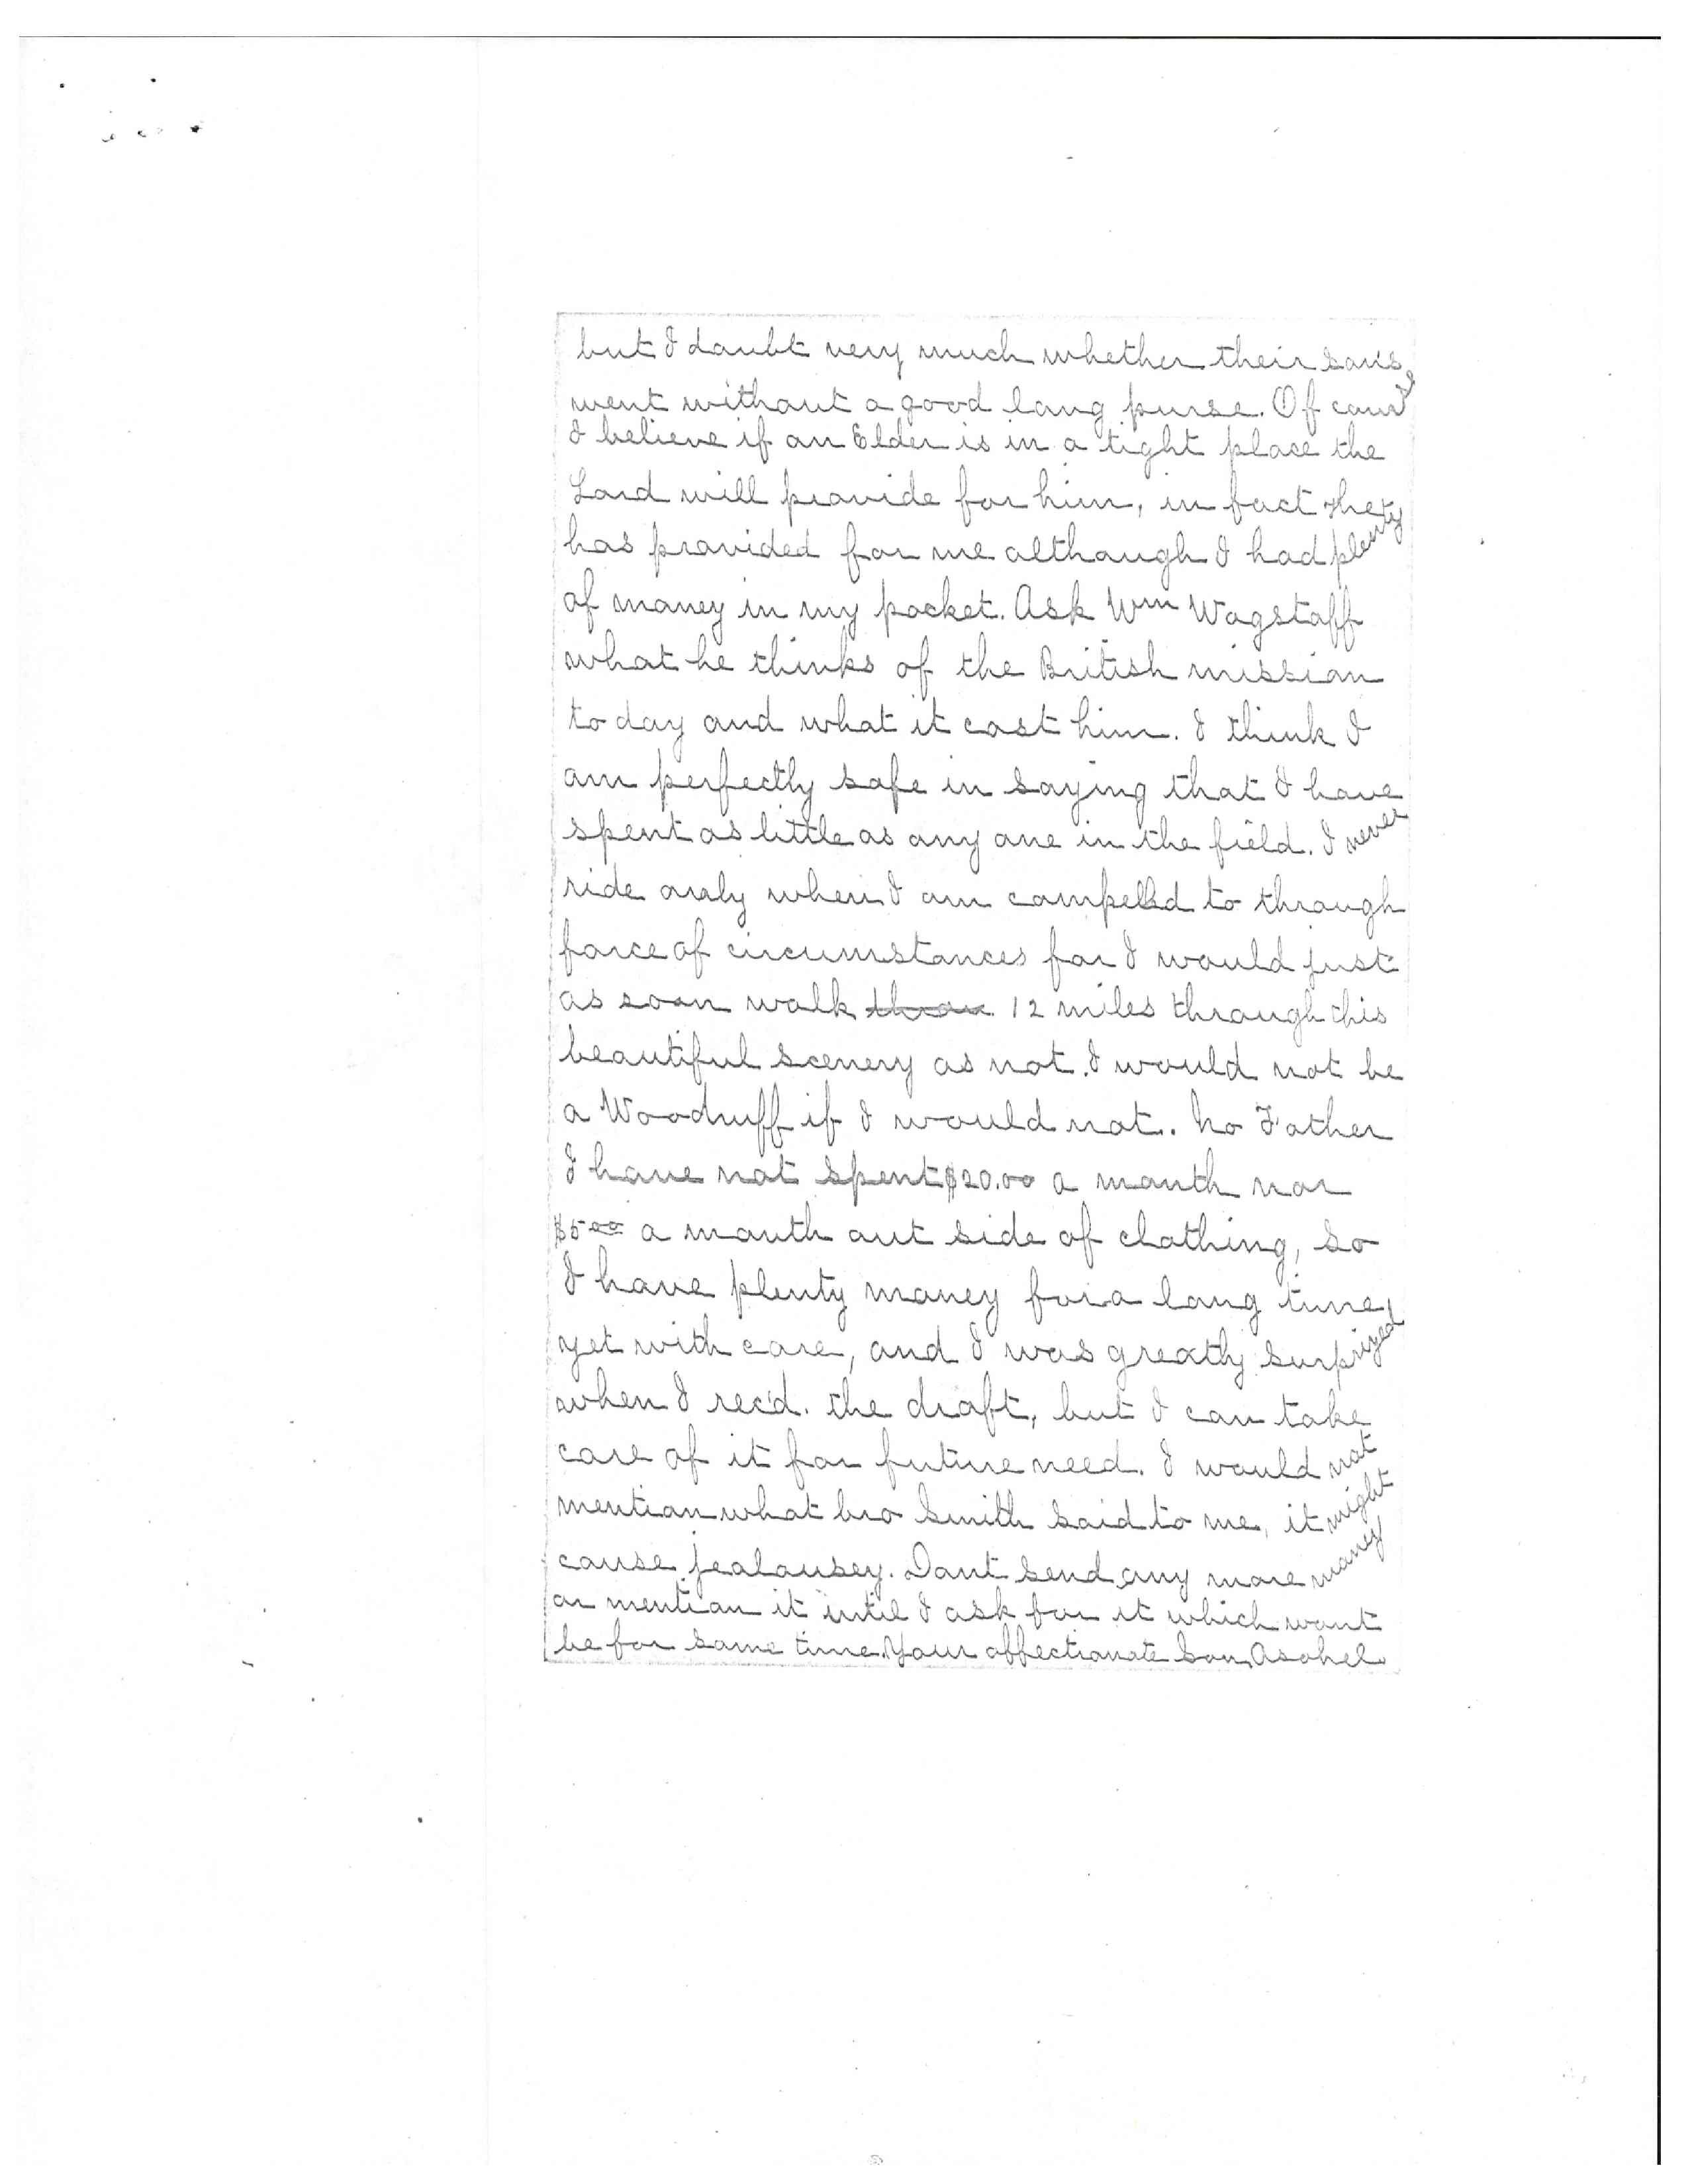 but I doubt very much whether their sons
went without a good long purse. Of course
I believe if an Elder is in a tight place the
Lord will provide for him, in fact He
has provided for me although I had plenty
of money in my pocket. Ask Wm Wagstaff
what he thinks of the British mission
to day and what it cost him. I think I
am perfectly safe in saying that I have
spent as little as any one in the field. I never
ride only when I am compelled to through
force of circumstances for I would just
as soon walk 12 miles through this
beautiful scenery as not. I would not be
a Woodruff if I would not. No Father
I have not spent $20.00 a month nor
$5.00 a month out side of clothing, so
I have plenty money for a long time
yet with care, and I was greatly surprized
when I rec'd. the draft, but I can take
care of it for future need. I would not
mention what bro Smith said to me, it might
cause jealousey. Dont send any more money
or mention it until I ask for it which wont
be for some time. Your affectionate Son, Asahel.